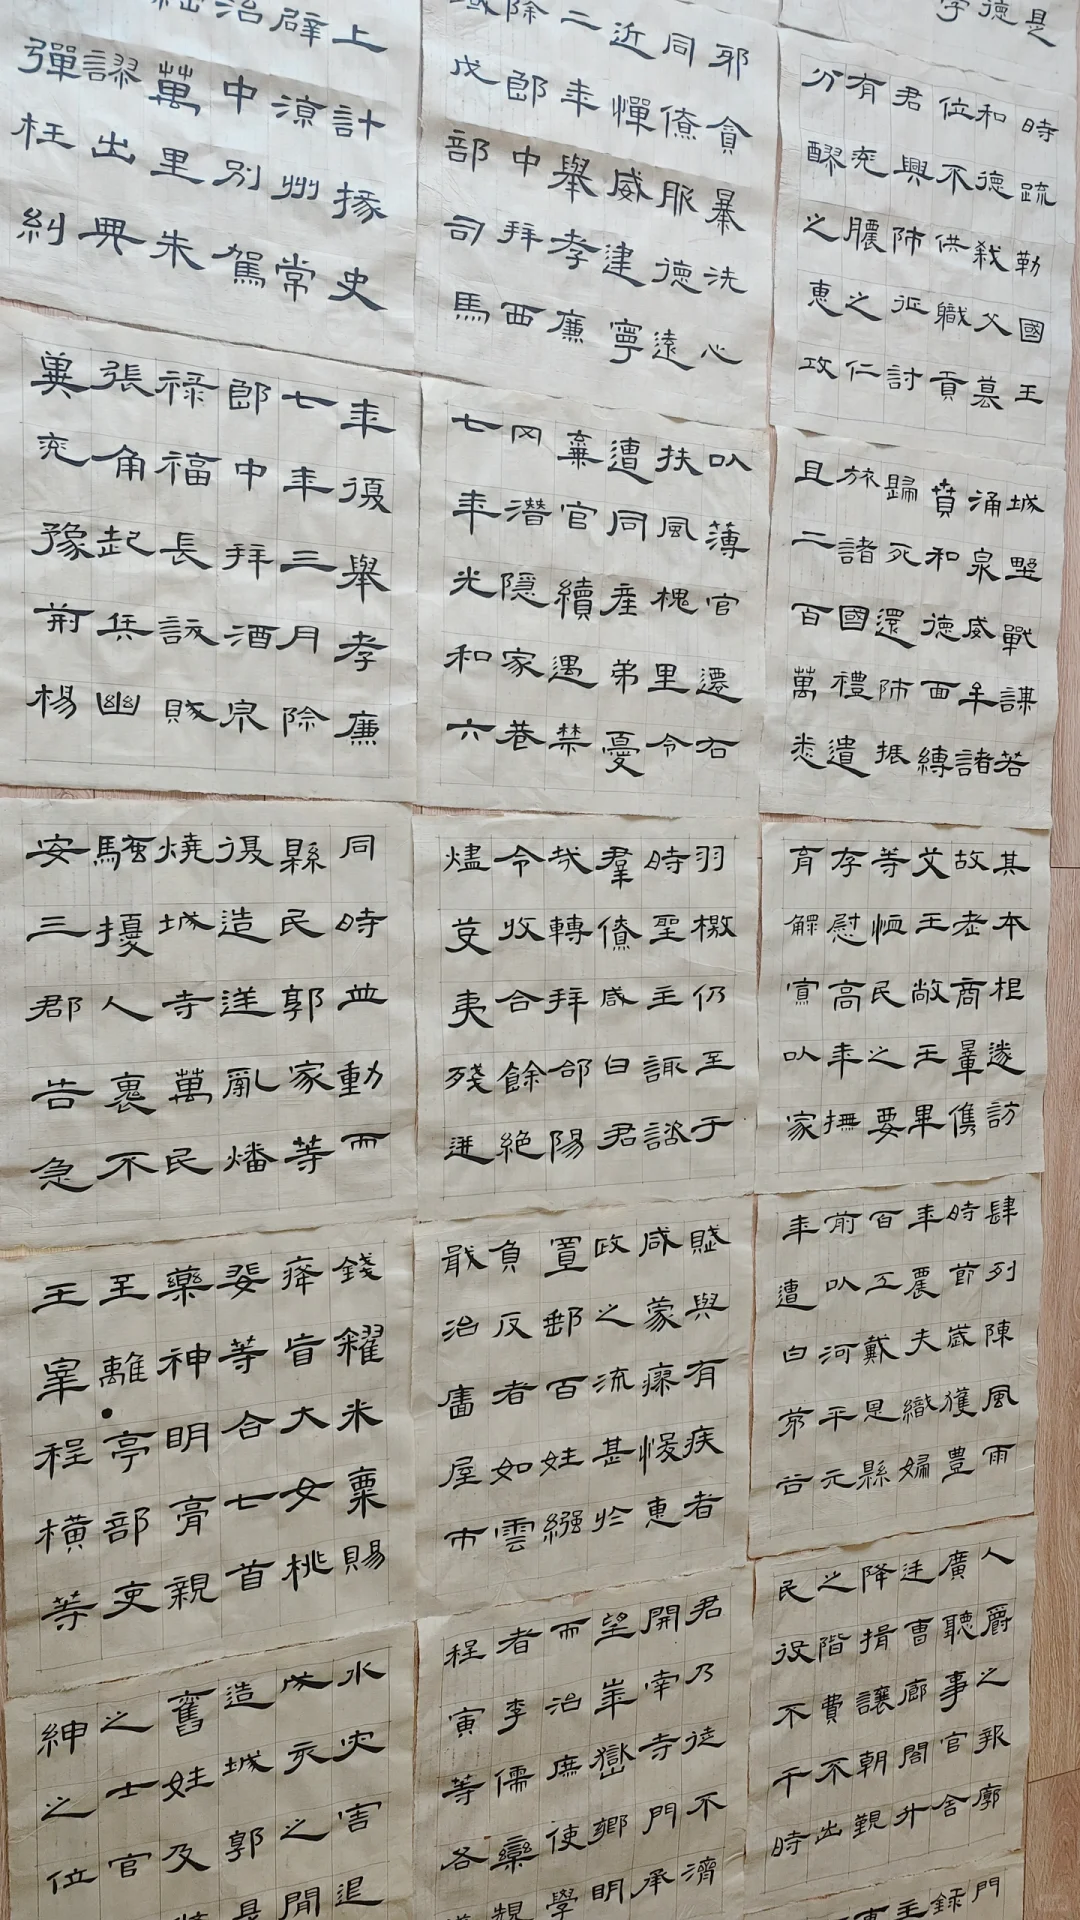 上計掾史
辟涼州常
治中別駕
萬里朱
謬出典
彈枉糾
邪貪暴洗心
同僚服德遠
近憚威建寧
二年舉孝廉
除郎中拜西
域戊部司馬
是
德
時疏勒國王
和德弒父篡
位不供職貢
君興師征討
有兗膿之仁
分醪之惠攻
城野戰謀若
涌泉威牟諸
賁和德面縛
歸死還師振
旅諸國禮遺
且二百萬悉
以薄官遷右
扶風槐里令
遭同產弟憂
棄官續遇禁
冈潛隱家巷
七年光和六
年復舉孝廉
七年三月除
郎中拜酒泉
祿福長訞賊
張角起兵幽
冀兗豫荊楊
同時並動而
縣民郭家等
復造逆亂燔
燒城寺萬民
騷擾人裹不
安三郡告急
羽檄仍至于
時聖主諏諮
羣僚咸曰君
哉轉拜郃陽
令收合餘絕
燼芟夷殘迸
其本根遂訪
故老商量儁
艾王敞王畢
等恤民之要
存慰高年撫
育鰥寡以家
錢糴米粟賜
癃盲大女桃
斐等合七首
藥神明膏親
至離亭部吏
王皋程橫等
賦與有疾者
咸蒙瘳悛惠
政之流甚於
置郵百姓繦
負反者如雲
戢治廧屋市
肆列陳風雨
時節歲獲豐
年農夫織婦
百工戴恩縣
前以河平元
年遭白茅谷
水灾害退
戌亥之間
造城郭是
舊姓及
之士官
紳之位
君乃徒不濟
開南寺門承
望華嶽鄉明
而治庶使學
者李儒欒規
程寅等各
人爵之報廓
廣聽事官舍
廷曹廊閣升
降揖讓朝覲
之階費不出
民役不干時
門
録
主